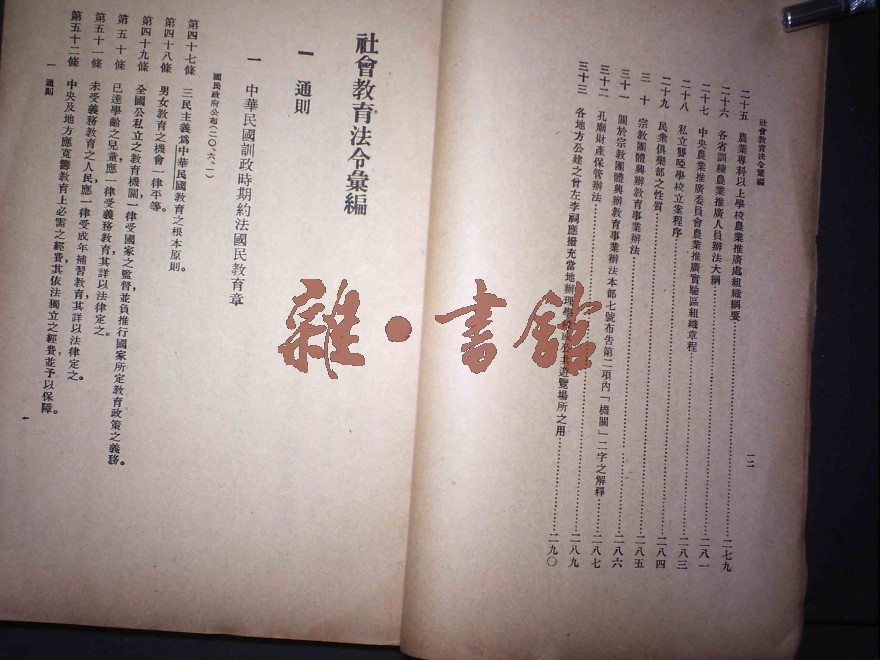 社會教育法令彙編
一二
二十五 農業專科以上學校農業推廣處組織綱要……二七九
二十六 各省訓練農業推廣人員辦法大綱……
二十七 中央農業推廣委員會農業推廣實驗區組織章程……二八一
二十八 私立聾啞學校立案程序……二八三
二十九 民衆俱樂部之性質……二八四
三十 宗教團體興辦教育事業辦法……二八五
三十一 關於宗教團體興辦教育事業辦法本部七號布告第二項內「機關」二字之解釋……二八六
三十二 孔廟財產保管辦法……二八七
三十三 各地方公建之曾左李祠應撥充當地辦理學校或公共遊覽場所之用……二八九
二九〇
社會教育法令彙編
一 通則
一 中華民國訓政時期約法國民教育章
國民政府公布(二〇、六、一)
第四十七條 三民主義爲中華民國教育之根本原則。
第四十八條 男女教育之機會一律平等。
第四十九條 全國公私立之教育機關一律受國家之監督,並負推行國家所定教育政策之義務。
第五十條 已達學齡之兒童應一律受義務教育,其詳以法律定之。
第五十一條 未受義務教育之人民,應一律受成年補習教育,其詳以法律定之。
第五十二條 中央及地方應寬籌教育上必需之經費,其依法獨立之經費,並予以保障。
一 通則
一
雜·書館